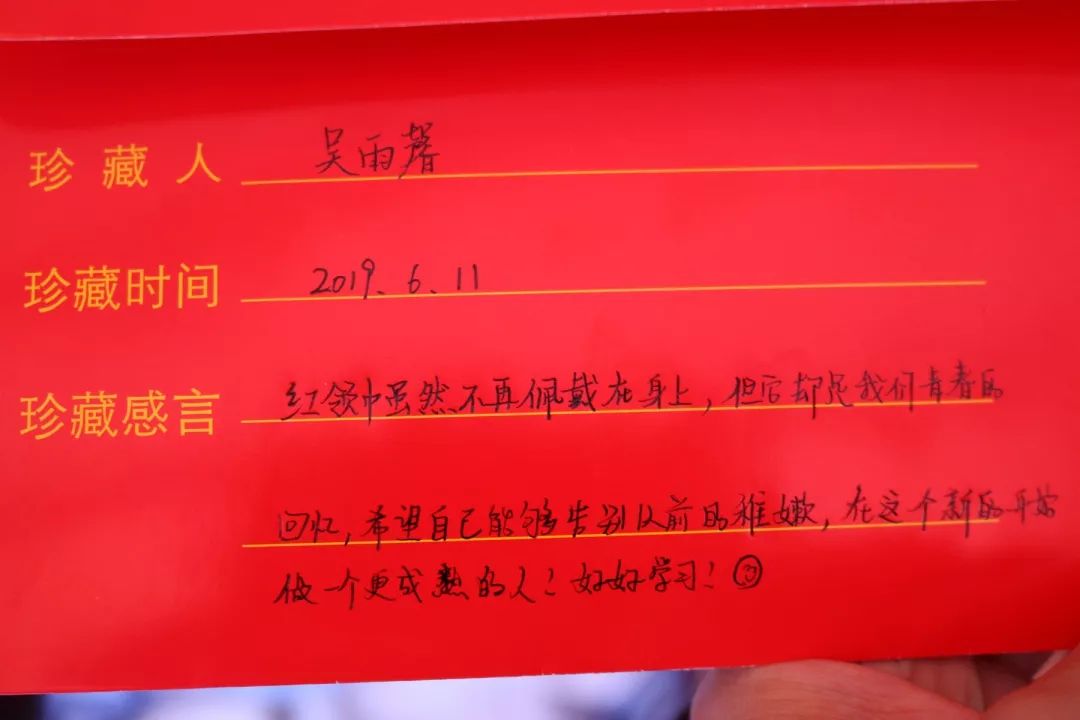 珍藏人 吴雨馨
珍藏时间 2019.6.11
珍藏感言 红领巾虽然不再佩戴在身上，但它却是我们青春的
回忆，希望自己能够告别以前的稚嫩，在这个新的开始
做一个更成熟的人！好好学习！